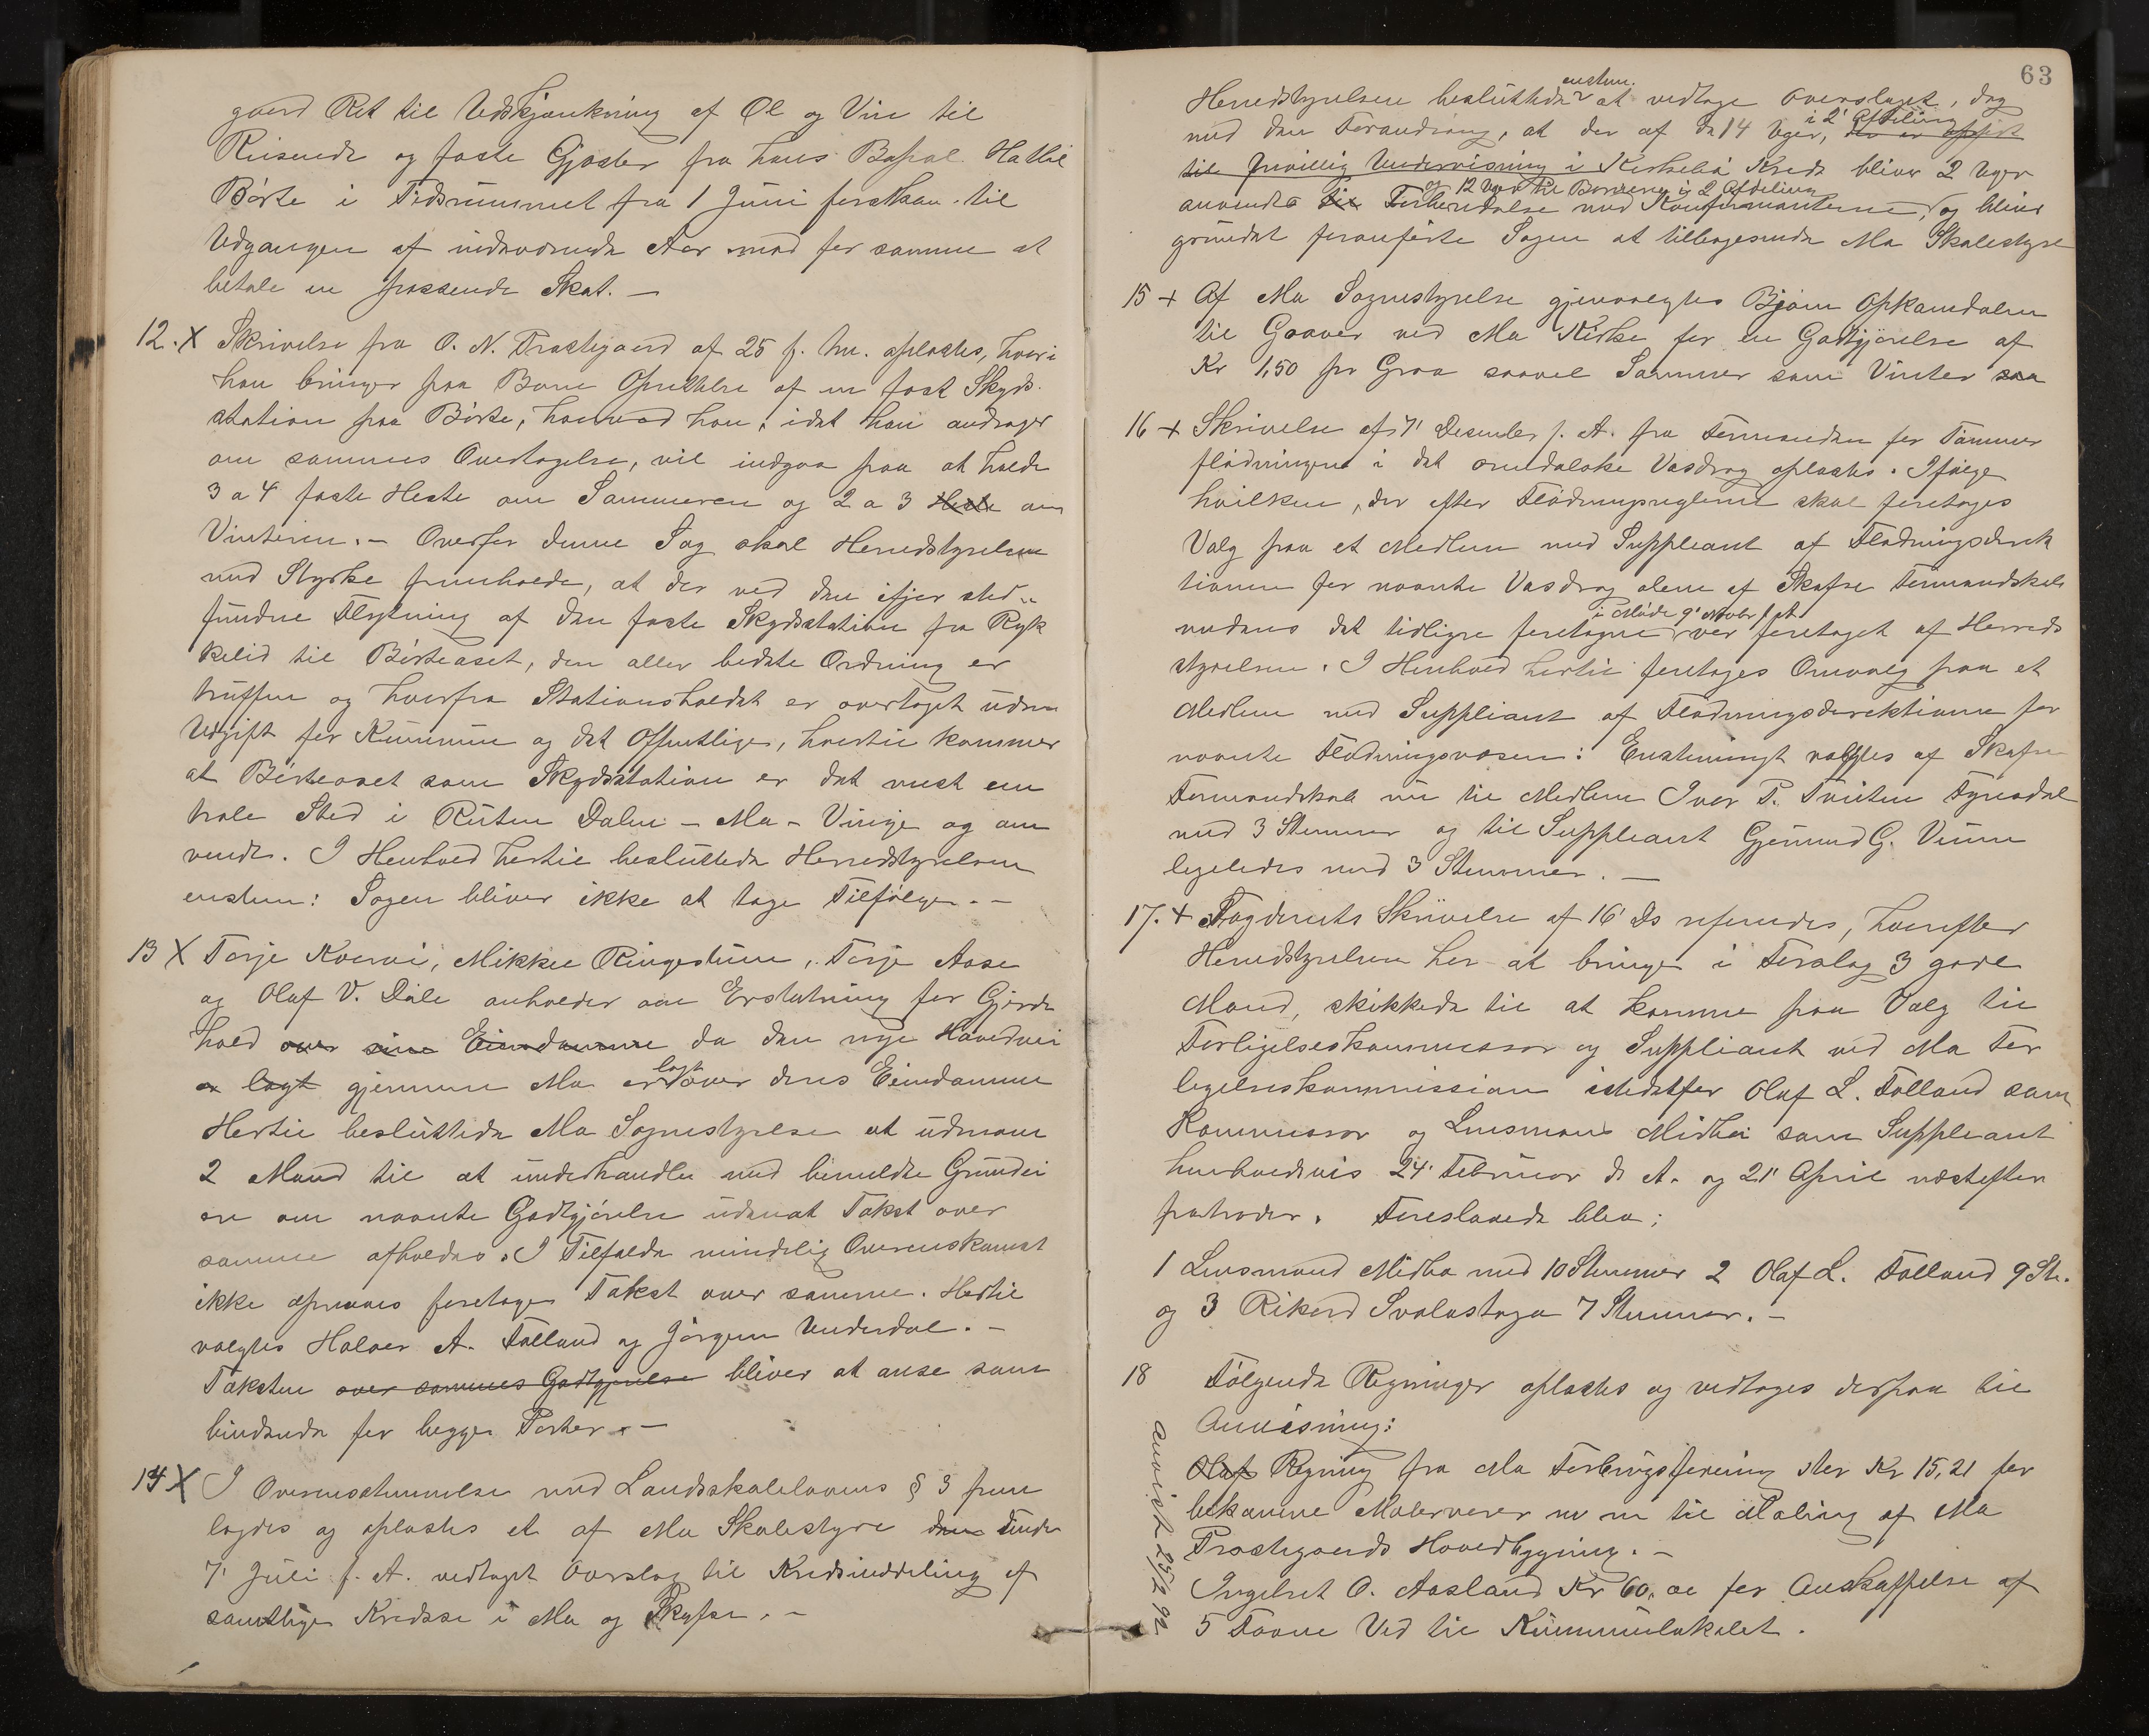 gaard Ret til Udskjænkning af Øl og Vin til
Reisende og faste Gjæster fra hans Bopæl Hotel
Børte i Tidsrummet fra 1 Juni førstkom. til
Udgangen af indeværende Aar mod for samme at
betale en passende Skat. —
12. X Skrivelse fra O. N. Træstegaard af 25 f. M. oplæstes, hvori
han bringer paa Bane Oprettelse af en fast Skyds-
station paa Børte, hvorved han, idet han andrager
om sammes Overtagelse, vil indgaa paa at holde
3 a 4 faste Heste om Sommeren og 2 a 3 Heste om
Vinteren. — Overfor denne Sag skal Herredstyrelsen
med Styrke fremholde, at der ved den ifjor sted-
fundne Flytning af den faste Skydsstation fra Ryk
kelid til Børteaset, den aller bedste Ordning er
truffen og hvorfra Stationsholdet er overtaget uden
Udgift for Kummune og det Offentlige, hvertil kommer
at Børteaset som Skydsstation er det mest cen
trale Sted i Ruten Dalen - Mo - Vinje og om
vendt. I Henhold hertil besluttede Herredstyrelsen
enstem: Sagen bliver ikke at tage Tilfølge. —
13 X Torje Kovervi, Mikkel Ringestuen, Torje Aase
og Olaf V. Dale anholder om Erstatning for Gjerde
hold over sine Eiendomme da den nye Hovedvei
er lagt gjennem Mo er lagt over deres Eiendomme
Hertil besluttede Mo Sognestyrelse at udnævne
2 Mand til at underhandle med bemeldte Grundei
ere om nævnte Godtgjørelse uden at Takst over
samme afholdes. I Tilfælde mindelig Overenskomst
ikke opnaaes foretages Takst over samme. Hertil
valgtes Halvor A. Folland og Jørgen Underdal. —
Taksten over sammes Godtgjørelse bliver at anse som
bindende for begge Parter. —
14 X I Overensstemmelse med Landsskolelovens § 3 frem
lagdes og oplæstes et af Mo Skolestyre den under
7' Juli f. A. vedtaget Overslag til Kredsinddeling af
samtlige Kredse i Mo og Skafse. —
63
Herredstyrelsen besluttede enstem. at vedtage Overslaget, dog
med den Forandring, at der af de 14 Uger, i 2' Afdeling der er opført
til frivillig Undervisning i Kirkebø Kreds bliver 2 Uger
anvendte til Forberedelse med Konfirmanterne, og 12 Uger til Børnene i 2 Afdeling og bliver
grundet foranførte Sagen at tilbagesende Mo Skolestyre
15 + Af Mo Sognestyrelse gjenvalgtes Bjørn Opkomdalen
til Graver ved Mo Kirke for en Godtgjørelse af
Kr 1,50 pr Grav saavel Sommer som Vinter saa
16 + Skrivelse af 7' Desember f. A. fra Formanden for Tømmer
flødningen i det arendalske Vasdrag oplæstes. Ifølge
hvilken, der efter Flødningsreglerne skal foretages
Valg paa et Medlem med Suppleant af Flødningsdirek
tionen for nævnte Vasdrag alene af Skafse Formandskab
medens det tidligere foretagne i Møde 9' Novbr f. A. var foretaget af Herreds
styrelsen. I Henhold hertil foretages Omvalg paa et
Medlem med Suppliant af Flødningsdirektionen for
nævnte Flødningsvæsen: Enstemmigt valgtes af Skafse
Formandskab nu til Medlem Iver P. Tveiten Fyresdal
med 3 Stemmer og til Suppleant Gjermund G. Veum
ligeledes med 3 Stemmer. —
17. + Fogderiets Skrivelse af 16' Ds refereredes, hvorefter
Herredstyrelsen har at bringe i Forslag 3 gode
Mænd, skikkede til at komme paa Valg til
Forligelseskommissær og Suppliant ved Mo For
ligelseskommission istedetfor Olaf L. Folland som
Kommissær og Lensmand Midbø som Suppleant
henholdsvis 24' Februar d. A. og 21' April næstefter
fratræder. Foreslaaede blev:
1 Lensmand Midbø med 10 Stemmer 2 Olaf L. Folland 9 St.
og 3 Rikard Svalastoga 7 Stemmer. —
18 Følgende Regninger oplæstes og vedtages derpaa til
Anvisning:
Olaf Regning fra Mo Forbrugsforening stor Kr 15,21 for
bekomne Malervarer m m til Maling af Mo
Præstegaards Hovedbygning. —
Ingebret O. Aasland Kr 60,00 for Anskaffelse af
5 Favne Ved til Kummunelokalet.
Anvist 25/2 92